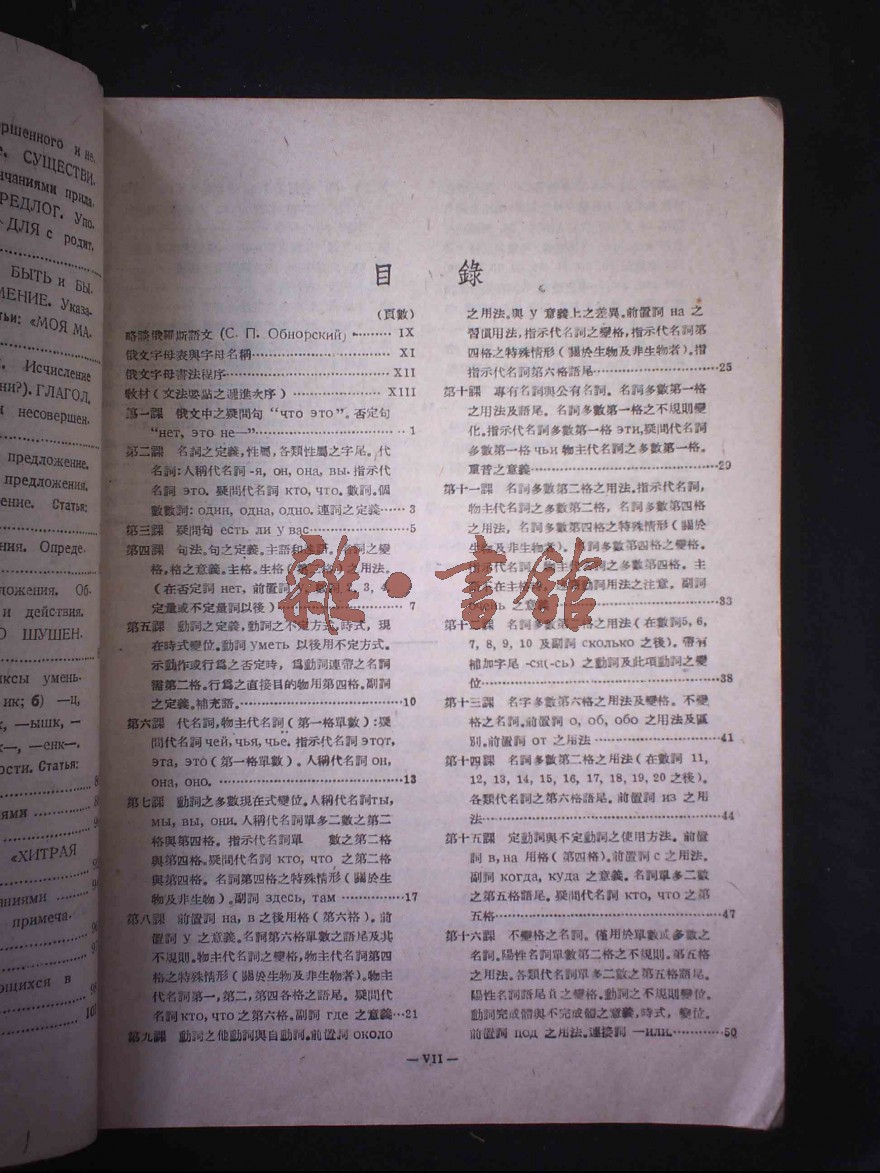 ршенного и не.
е. СУЩЕСТВИ.
нчаниями прила.
РЕДЛОГ. Упо.
ДЛЯ с родит.
БЫТЬ и БЫ.
МЕНИЕ. Указа-
тьи: «МОЯ МА.
Исчисление
ни?). ГЛАГОЛ,
и несовершен.
предложение.
предложения.
ение. Статья:
ния. Опреде-
ложения. Об-
и действия.
О ШУШЕН-
иксы умень-
ик; б) —ц,
к, —ышк, —
к—, —енк—.
ости. Статья:
ями
«ХИТРАЯ
аниями
примеча-
ющихся в
目 錄
(頁數)
略談俄羅斯語文 (С. П. Обнорский) ········· IX
俄文字母表與字母名稱 ········· XI
俄文字母書法程序 ········· XII
教材 (文法要點之遞進次序) ········· XIII
第一課 俄文中之疑問句 "что это". 否定句
"нет, это не—" ········· 1
第二課 名詞之定義, 性屬, 各類性屬之字尾. 代
名詞: 人稱代名詞 -я, он, она, вы. 指示代
名詞 это. 疑問代名詞 кто, что. 數詞. 個
數數詞: один, одна, одно. 連詞之定義 ····· 3
第三課 疑問句 есть ли у вас ········· 5
第四課 句法. 句之定義. 主語和 名詞之變
格. 格之意義. 主格. 生格 (第二格) 之用法.
(在否定詞 нет, 前置詞 у, 數詞 2, 3, 4,
定量或不定量詞以後) ········· 7
第五課 動詞之定義, 動詞之不定方式, 時式, 現
在時式變位. 動詞 уметь 以後用不定方式.
示動作或行爲之否定時, 爲動詞連帶之名詞
需第二格. 行爲之直接目的物用第四格. 副詞
之定義. 補充語. ········· 10
第六課 代名詞, 物主代名詞 (第一格單數): 疑
問代名詞 чей, чья, чье. 指示代名詞 этот,
эта, это (第一格單數). 人稱代名詞 он,
она, оно. ········· 13
第七課 動詞之多數現在式變位. 人稱代名詞 ты,
мы, вы, они. 人稱代名詞單多二數之第二
格與第四格. 指示代名詞單 數之第二格
與第四格. 疑問代名詞 кто, что 之第二格
與第四格. 名詞第四格之特殊情形 (關於生
物及非生物). 副詞 здесь, там ········· 17
第八課 前置詞 на, в 之後用格 (第六格). 前
置詞 у 之意義. 名詞第六格單數之語尾及其
不規則. 物主代名詞之變格, 物主代名詞第四
格之特殊情形 (關於生物及非生物者). 物主
代名詞第一, 第二, 第四各格之語尾. 疑問代
名詞 кто, что 之第六格. 副詞 где 之意義 ··· 21
第九課 動詞之他動詞與自動詞. 前置詞 около
之用法. 與 у 意義上之差異. 前置詞 на 之
習慣用法, 指示代名詞之變格, 指示代名詞第
四格之特殊情形 (關於生物及非生物者). 指
指示代名詞第六格語尾 ········· 25
第十課 專有名詞與公有名詞. 名詞多數第一格
之用法及語尾. 名詞多數第一格之不規則變
化. 指示代名詞多數第一格 эти, 疑問代名詞
多數第一格 чьи 物主代名詞之多數第一格.
重音之意義 ········· 29
第十一課 名詞多數第二格之用法. 指示代名詞,
物主代名詞之多數第二格, 名詞多數第四格
之用法, 名詞多數第四格之特殊情形 (關於
生物及非生物者). 名詞多數第四格之變格.
指示代名詞, 物主代名詞之多數第四格. 主
不在主格時, 動詞用法之注意. 副詞
очень 之意義 ········· 33
第十二課 名詞多數第二格之用法 (在數詞 5, 6,
7, 8, 9, 10 及副詞 сколько 之後). 帶有
補加字尾 -ся(-сь) 之動詞及此項動詞之變
位 ········· 38
第十三課 名字多數第六格之用法及變格. 不變
格之名詞. 前置詞 о, об, обо 之用法及區
別. 前置詞 от 之用法 ········· 41
第十四課 名詞多數第二格之用法 (在數詞 11,
12, 13, 14, 15, 16, 17, 18, 19, 20 之後).
各類代名詞之第六格語尾. 前置詞 из 之用
法 ········· 44
第十五課 定動詞與不定動詞之使用方法. 前置
詞 в, на 用格 (第四格). 前置詞 с 之用法.
副詞 когда, куда 之意義. 名詞單多二數
之第五格語尾. 疑問代名詞 кто, что 之第
五格 ········· 47
第十六課 不變格之名詞. 僅用於單數或多數之
名詞. 陽性名詞單數第二格之不規則. 第五格
之用法. 各類代名詞單多二數之第五格語尾.
陽性名詞語尾 й 之變格. 動詞之不規則變位.
動詞完成體與不完成體之意義, 時式, 變位.
前置詞 под 之用法. 連接詞 —или. ········· 50
— VII —
雜·書館